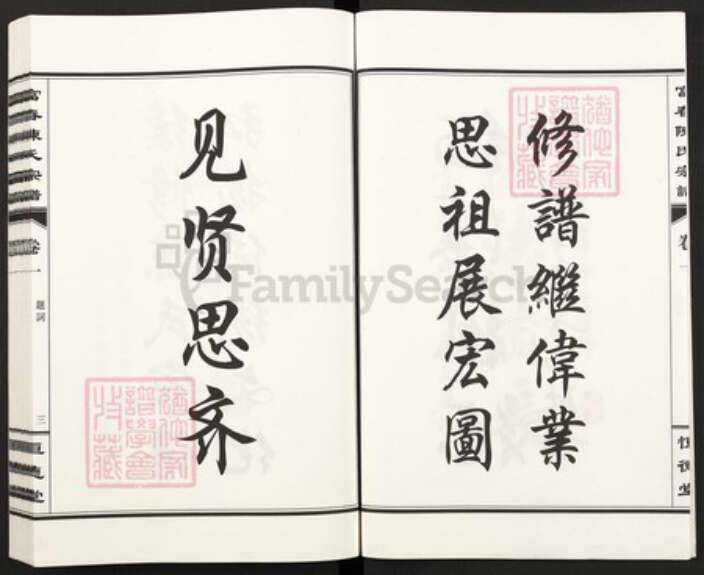 修譜繼偉業
思祖展宏圖
见贤思齐
富春陳氏宗譜
卷一
題詞
三
FamilySearch